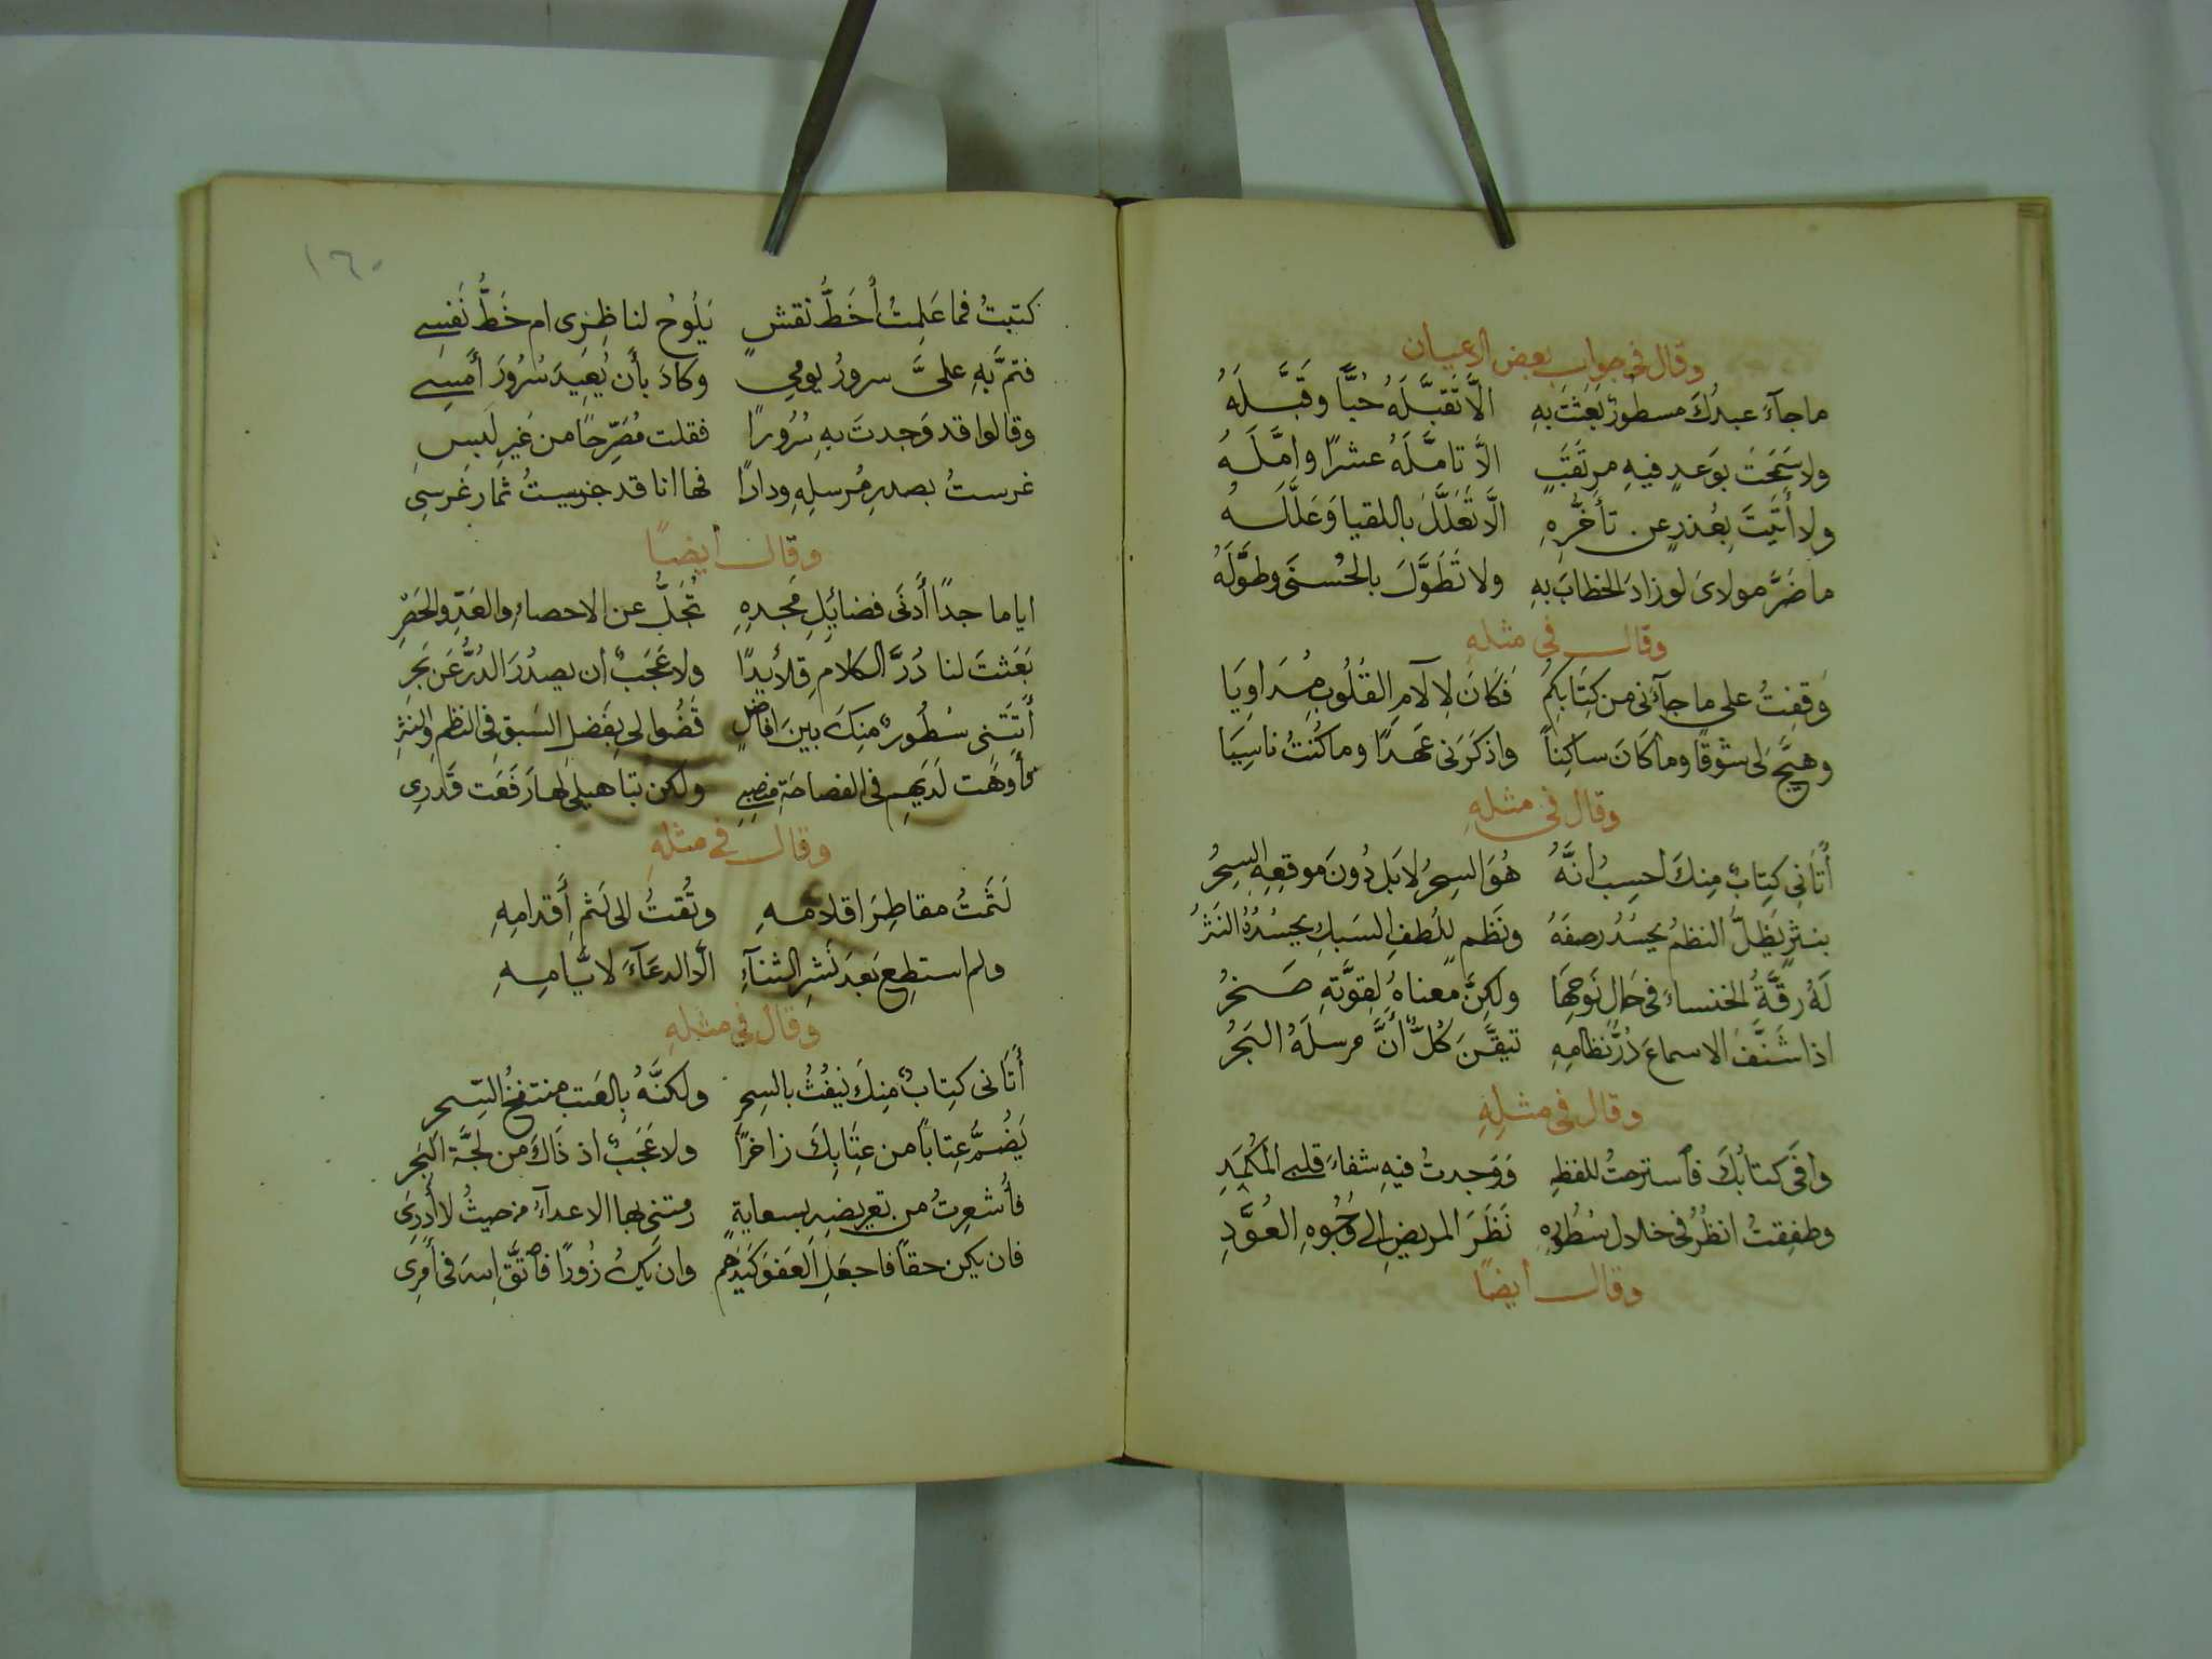 وقال في جواب بعض الاعيان
ما جآءَ عبدُكَ مسطورٌ بَعَثتَ بهِ الَّا تَقبَّلَهُ حُبًّا وقَبَّلَهُ
ولا سَمَحَتَ بوَعدٍ فيهِ مرتَقَبٍ الَّا تامَّلَهُ عشرًا وامَّلَهُ
ولا أتَيتَ بِعُذرٍ عن تأخُّرِهِ الَّا تَعَلَّلَ باللقيا وَعَلَّلَهُ
ما ضَرَّ مولايَ لو زادَ الخطابَ بهِ ولا تَطَوَّلَ بالحُسنَى وطوَّلَهُ
وقال في مثلهِ
وَقفتُ على ما جآءَني من كِتَابِكُمُ فَكَانَ لِآلَامِ القُلُوبِ مُدَاوِيَا
وهَيَّجَ لى شوقًا وما كَانَ ساكِنًا واذكَرَنى عَهدًا وما كُنتُ ناسِيَا
وقال في مثلهِ
أتَانى كِتابٌ مِنكَ احسِبُ انَّهُ هُوَ السِحرُ لا بَل دُونَ موقِعِهِ السِحرُ
بنثرٍ يَظَلُّ النظمُ يحسُدُ رصفَهُ ونَظمٍ لِلُطفِ السَبكِ يحسُدُهُ النَثرُ
لَهُ رقَّةُ الخنساءِ في حَالِ نَوحِهَا ولكنَّ معناهُ لِقوَّتهِ صخرُ
اذا شَنَّفَ الاسماعَ دُرُّ نظامِهِ تيقَّنَ كُلٌّ أنَّ مرسلَهُ البَحرُ
وقال في مثلِهِ
وافَى كتابُكَ فاسترحتُ للفظِهِ وَوَجدتُ فيهِ شفاءَ قلبى المُكمَدِ
وطفِقتُ انظُرُ في خلالِ سُطُورِهِ نَظَرَ المريضِ الى وُجُوهِ العُوَّدِ
وقال ايضًا
١٦٠
كتبتُ فما عَلِمتُ أخَطُّ نقشٍ يَلُوحُ لناظِرى ام خَطُّ نَفسِى
فتمَّ بهِ علىَّ سرورُ يومي وكادَ بأن يُعيدَ سُرُورَ أمسِى
وقالوا قد وَجدتَ بهِ سُرُورًا فقلت مُصَرِّحًا من غَيرِ لَبسِ
غرستُ بصدرِ مُرسلِهِ ودادًا فها انا قد جنيتُ ثمارَ غرسِى
وقال أيضًا
ايا ماجدًا أدنَى فضائِلِ مَجدِهِ تُجَلُّ عن الاحصاءِ والعَدِّ والحَصرِ
بَعَثتَ لنا دُرَّ الكلامِ قلائِدًا ولا عَجَبٌ ان يصدُرَ الدُرُّ عَن بَحرِ
أتَتَنى سُطُورٌ منكَ بينَ افاضِلٍ قَضُوا لى بِفَضلِ السَبقِ فى النظمِ والنثرِ
وأوهَت لَدَيهِم فى الفصاحَةِ منصِبى ولكن تباهيلى لها رَفَعَت قَدرِى
وقال فى مثلِهِ
لَثَمتُ مقاطِرَ اقلامهِ وتُقتُ الى لَثمِ أقدامِهِ
ولم استطِع بَعدَ نَشرِ الثنآءِ الَّا الدعَآءَ لايَّامِهِ
وقال في مثلهِ
أتَانى كِتابٌ مِنكَ يَنفُثُ بالسِحرِ ولكنَّهُ بالعَتبِ منتفخُ السّحرِ
يَضُمُّ عِتابًا من عِتَابِكَ زاخرًا ولا عَجَبٌ اذ ذَاكَ من لُجَّةِ البَحرِ
فأُشعِرتُ من تعريضِهِ بسعايةٍ رمتنى بها الاعدآءُ من حيثُ لا أدرِى
فان يكن حقًا فاجعَلِ العَفوَ كَيدَهم وان يكُ زُورًا فاتَّقِ اللهَ فى أمرِى